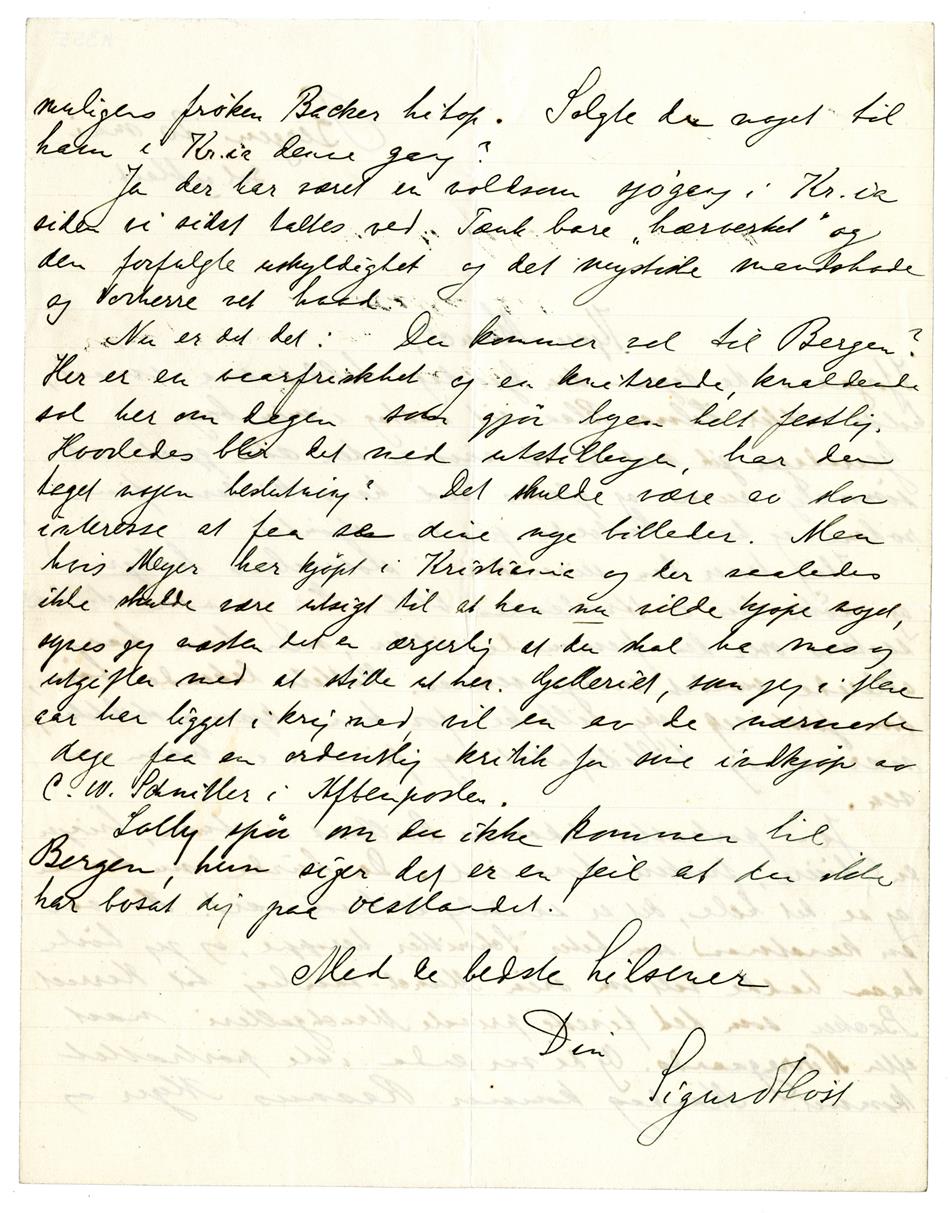 muligens frøken Backer hitop. Solgte du noget til
ham i Kr.ia denne gang?
Ja der har været en voldsom sjøgang i Kr.ia
siden vi sidst taltes ved. Tænk bare "hærverket" og
den forfulgte uskyldighet og det mystiske mandshode
og Vorherre vet hvad.
Nu er det det: Du kommer vel til Bergen?
Her er en vaarfriskhet og en knitrende, knaldende
sol her om dagen som gjør byen helt festlig.
Hvorledes blir det med utstillingen, har du
taget nogen beslutning? Det skulde være av stor
interesse at faa se dine nye billeder. Men
hvis Meyer har kjøpt i Kristiania og der saaledes
ikke skulde være utsigt til at han nu vilde kjøpe noget,
synes jeg næsten det er ærgerlig at du skal ha mas og
utgifter med at stille ut her. Galleriet, som jeg i flere
aar har ligget i krig med, vil en av de nærmeste
dage faa en ordentlig kritik for sine indkjøp av
C. W. Schnitler i Aftenposten.
Lolly spør om du ikke kommer til
Bergen, hun siger det er en feil at du ikke
har bosat dig paa vestlandet.
Med de bedste hilsener
Din
Sigurd Høst